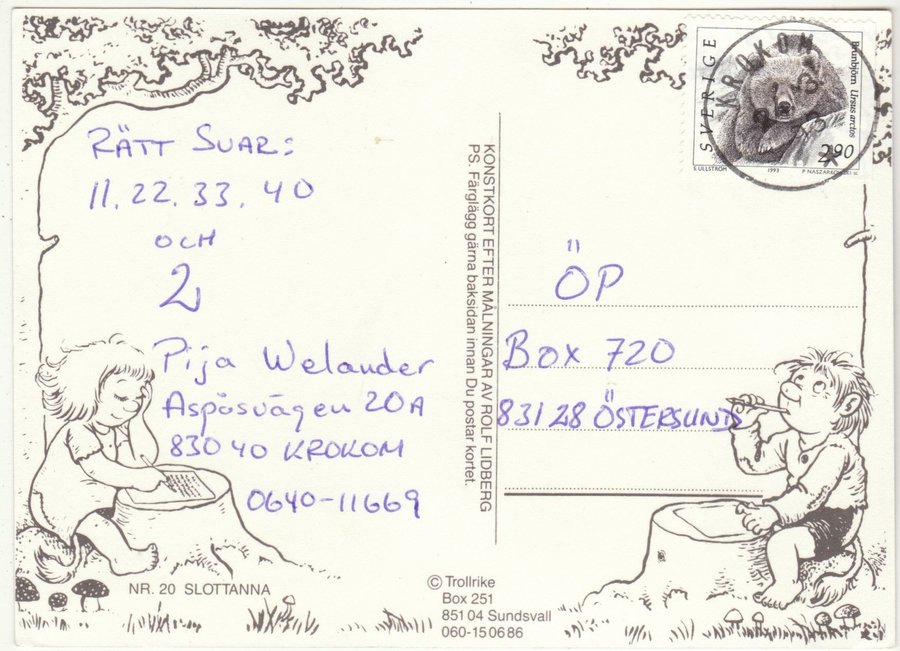 RÄTT SVAR:
11. 22. 33. 40
OCH
2
Pija Welander
Aspåsvägen 20A
830 40 KROKOM
0640-11669
NR. 20 SLOTTANNA
KONSTKORT EFTER MÅLNINGAR AV ROLF LIDBERG
PS. Färglägg gärna baksidan innan Du postar kortet.
© Trollrike
Box 251
851 04 Sundsvall
060-15 06 86
SVERIGE
Brunbjörn Ursus arctos
2.90
S. ULLSTRÖM 1993 P. NASZARKOWSKI sc.
KROKOM
ÖP
Box 720
831 28 ÖSTERSUND